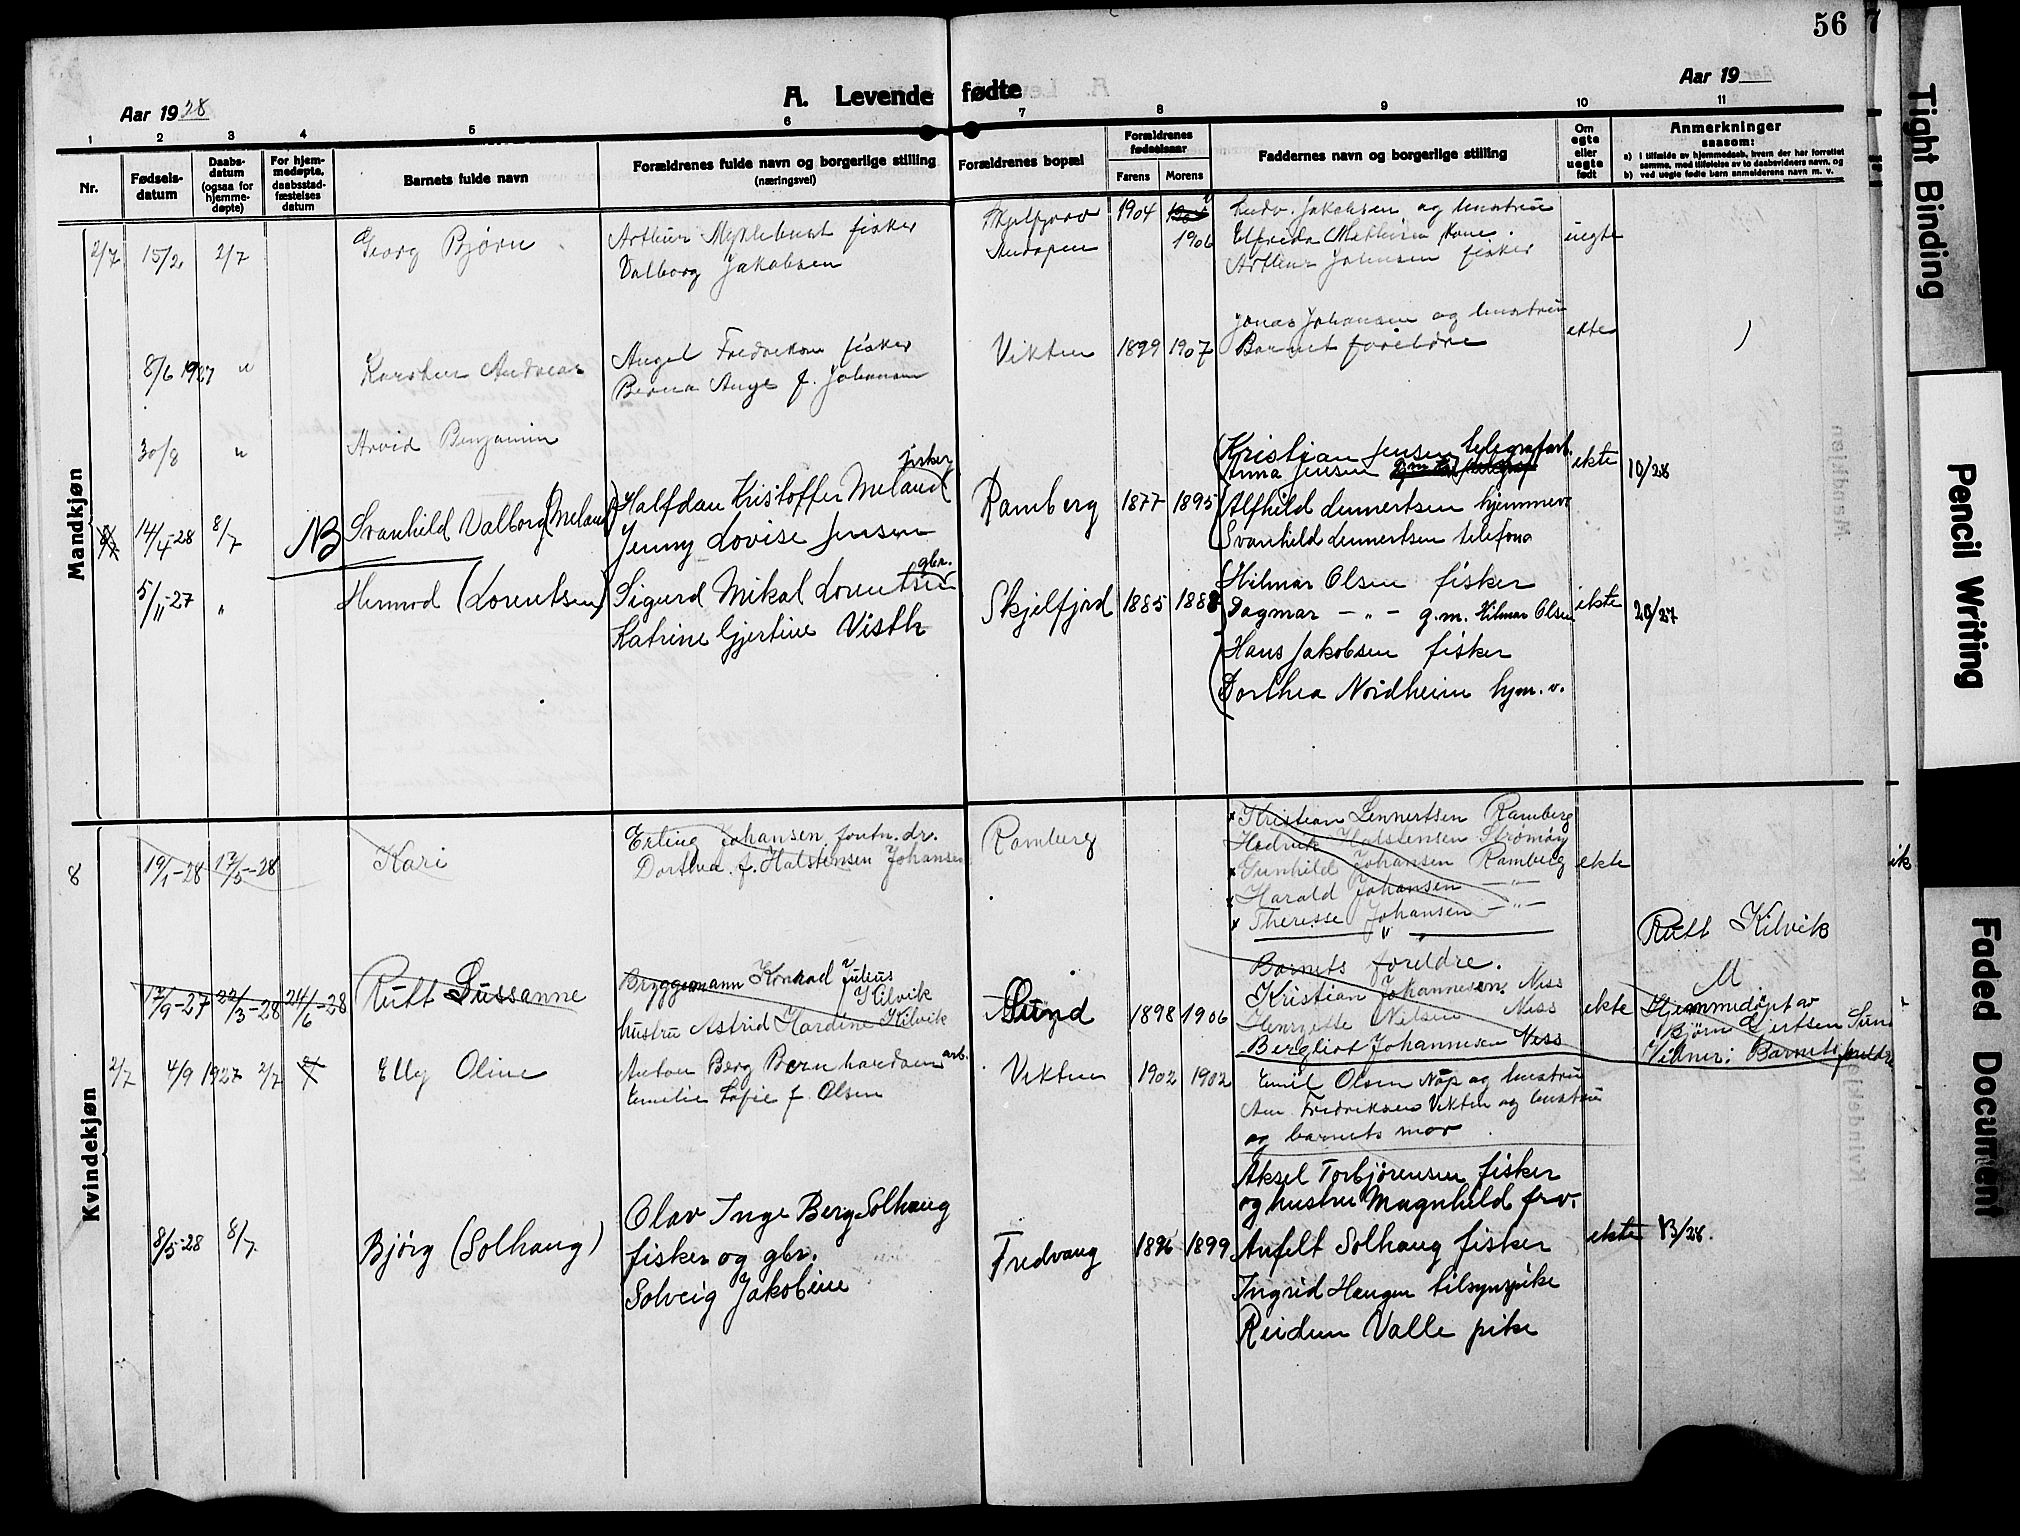 56
Aar 1928
A. Levende fødte
Aar 19
1 2 3 4 5 6 7 8 9 10 11
Nr.
Fødsels-
datum
Daabs-
datum
(ogsaa for
hjemme-
døpte)
For hjem-
medøpte,
daabsstad-
fæstelses
datum
Barnets fulde navn
Forældrenes fulde navn og borgerlige stilling
(næringsvei)
Forældrenes bopæl
Forældrenes
fødselsaar
Farens Morens
Faddernes navn og borgerlige stilling
Om
egte
eller
uegte
født
Anmerkninger
saasom:
a) i tilfælde av hjemmedaab, hvem der har forrettet
samme, med tilføielse av to daabsvidners navn, og
b) ved uegte fødte børn anmelderens navn m. v.
Mandkjøn
2/7 15/2 2/7 Georg Bjørn
Arthur Myklebust fisker
Valborg Jakobsen
Skjelfjord
1904 1906
Ludv. Jakobsen og hustru
Elfrida Mathisen kone.
Arthur Johnsen fisker
uegte
8/6 1927 " Karsten Andreas
Angel Fredriksen fisker
Berna Ange f. Johansen
Vikten 1899 1907
Jonas Johansen og hustru
Barnet foreldre
ekte
30/8 " Arvid Benjamin
14/4-28 8/7 NB Svanhild Valborg (Meland)
Halfdan Kristoffer Meland fisker
Jenny Lovise Jensen
Ramberg 1877 1895
Kristian Jensen telegrafarb.
Anna Jensen
Alfhild Lennertsen hjemmev
Svanhild Lennertsen telefona
ekte 10/28
5/11-27 " Hermod (Lorentsen)
Sigurd Mikal Lorentsen gbr.
Katrine Gjertine Visth
Skjelfjord 1885 1888
Hilmar Olsen fisker
Dagmar -"- g.m. Hilmar Olsen
Hans Jakobsen fisker
Dorthea Nordheim hjm. v.
ekte 20/27
Kvindekjøn
8 19/1-28 17/5-28 Kari
Erling Johansen,
Dorthea f. Halstensen Johansen
Ramberg
Kristian Lennertsen Ramberg
Hedvik Halstensen Strømøy
Gunhild Johansen Ramberg
Harald Johansen -"-
Theresse Johansen -"-
ekte
17/9-27 22/3-28 24/6-28 Rutt Sussanne
Bryggemann Konrad Julius
Kilvik
hustru Astrid Hardine Kilvik
Sund 1898 1906
Barnets foreldre.
Kristian Johannesen Ness
Henrzette Nelsen Ness
Bergliot Johannesen Ness
ekte
Rutt Kilvik
Hjemmedöpt av
Bjørn Gjertsen Sund
Vidner: Barnets foreldre
2/7 4/9 1927 2/7 Elly Oline
Anton Berg Bernhardsen arb.
Emilie Sofie f. Olsen
Vikten 1902 1902
Emil Olsen Nap og hustru
Fredriksen Vikten og hustru
og barnets mor
8/5-28 8/7 Bjørg (Solhaug)
Olav Inge Berg Solhaug
fisker og gbr.
Solveig Jakobine
Fredvang 1896 1899
Aksel Torbjørensen fisker
og hustru Magnhild frv.
Anfelt Solhaug fisker
Ingrid Haugen tilsynspike
Reidun Valle pike
ekte 13/28.
Tight Binding
Pencil Writing
Faded Document